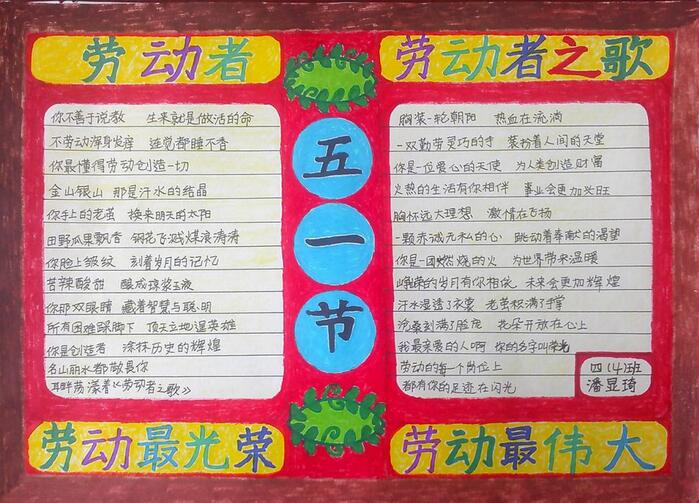 劳动者
你不善于说教 生来就是做活的命
不劳动浑身发痒 连觉都睡不香
你最懂得劳动创造一切
金山银山 那是汗水的结晶
你手上的老茧 换来明天的太阳
田野瓜果飘香 钢花飞溅煤浪涛涛
你脸上皱纹 刻着岁月的记忆
苦辣酸甜 酿成琼浆玉液
你那双眼睛 藏着智慧与聪明
所有困难踩脚下 顶天立地逞英雄
你是创造者 涂抹历史的辉煌
名山丽水都敬畏你
耳畔荡漾着《劳动者之歌》
劳动最光荣
五一节
劳动者之歌
胸装一轮朝阳 热血在流淌
一双勤劳灵巧的手 装扮着人间的天堂
你是一位爱心的天使 为人类创造财富
火热的生活有你相伴 事业会更加兴旺
胸怀远大理想 激情在飞扬
一颗赤诚无私的心 跳动着奉献的渴望
你是一团燃烧的火 为世界带来温暖
峥嵘的岁月有你相依 未来会更加辉煌
汗水湿透了衣裳 老茧积满了手掌
沧桑刻满了脸庞 花朵开放在心上
我最亲爱的人啊 你的名字叫荣光
劳动的每一个岗位上
都有你的足迹在闪光
四(4)班
潘显琦
劳动最伟大